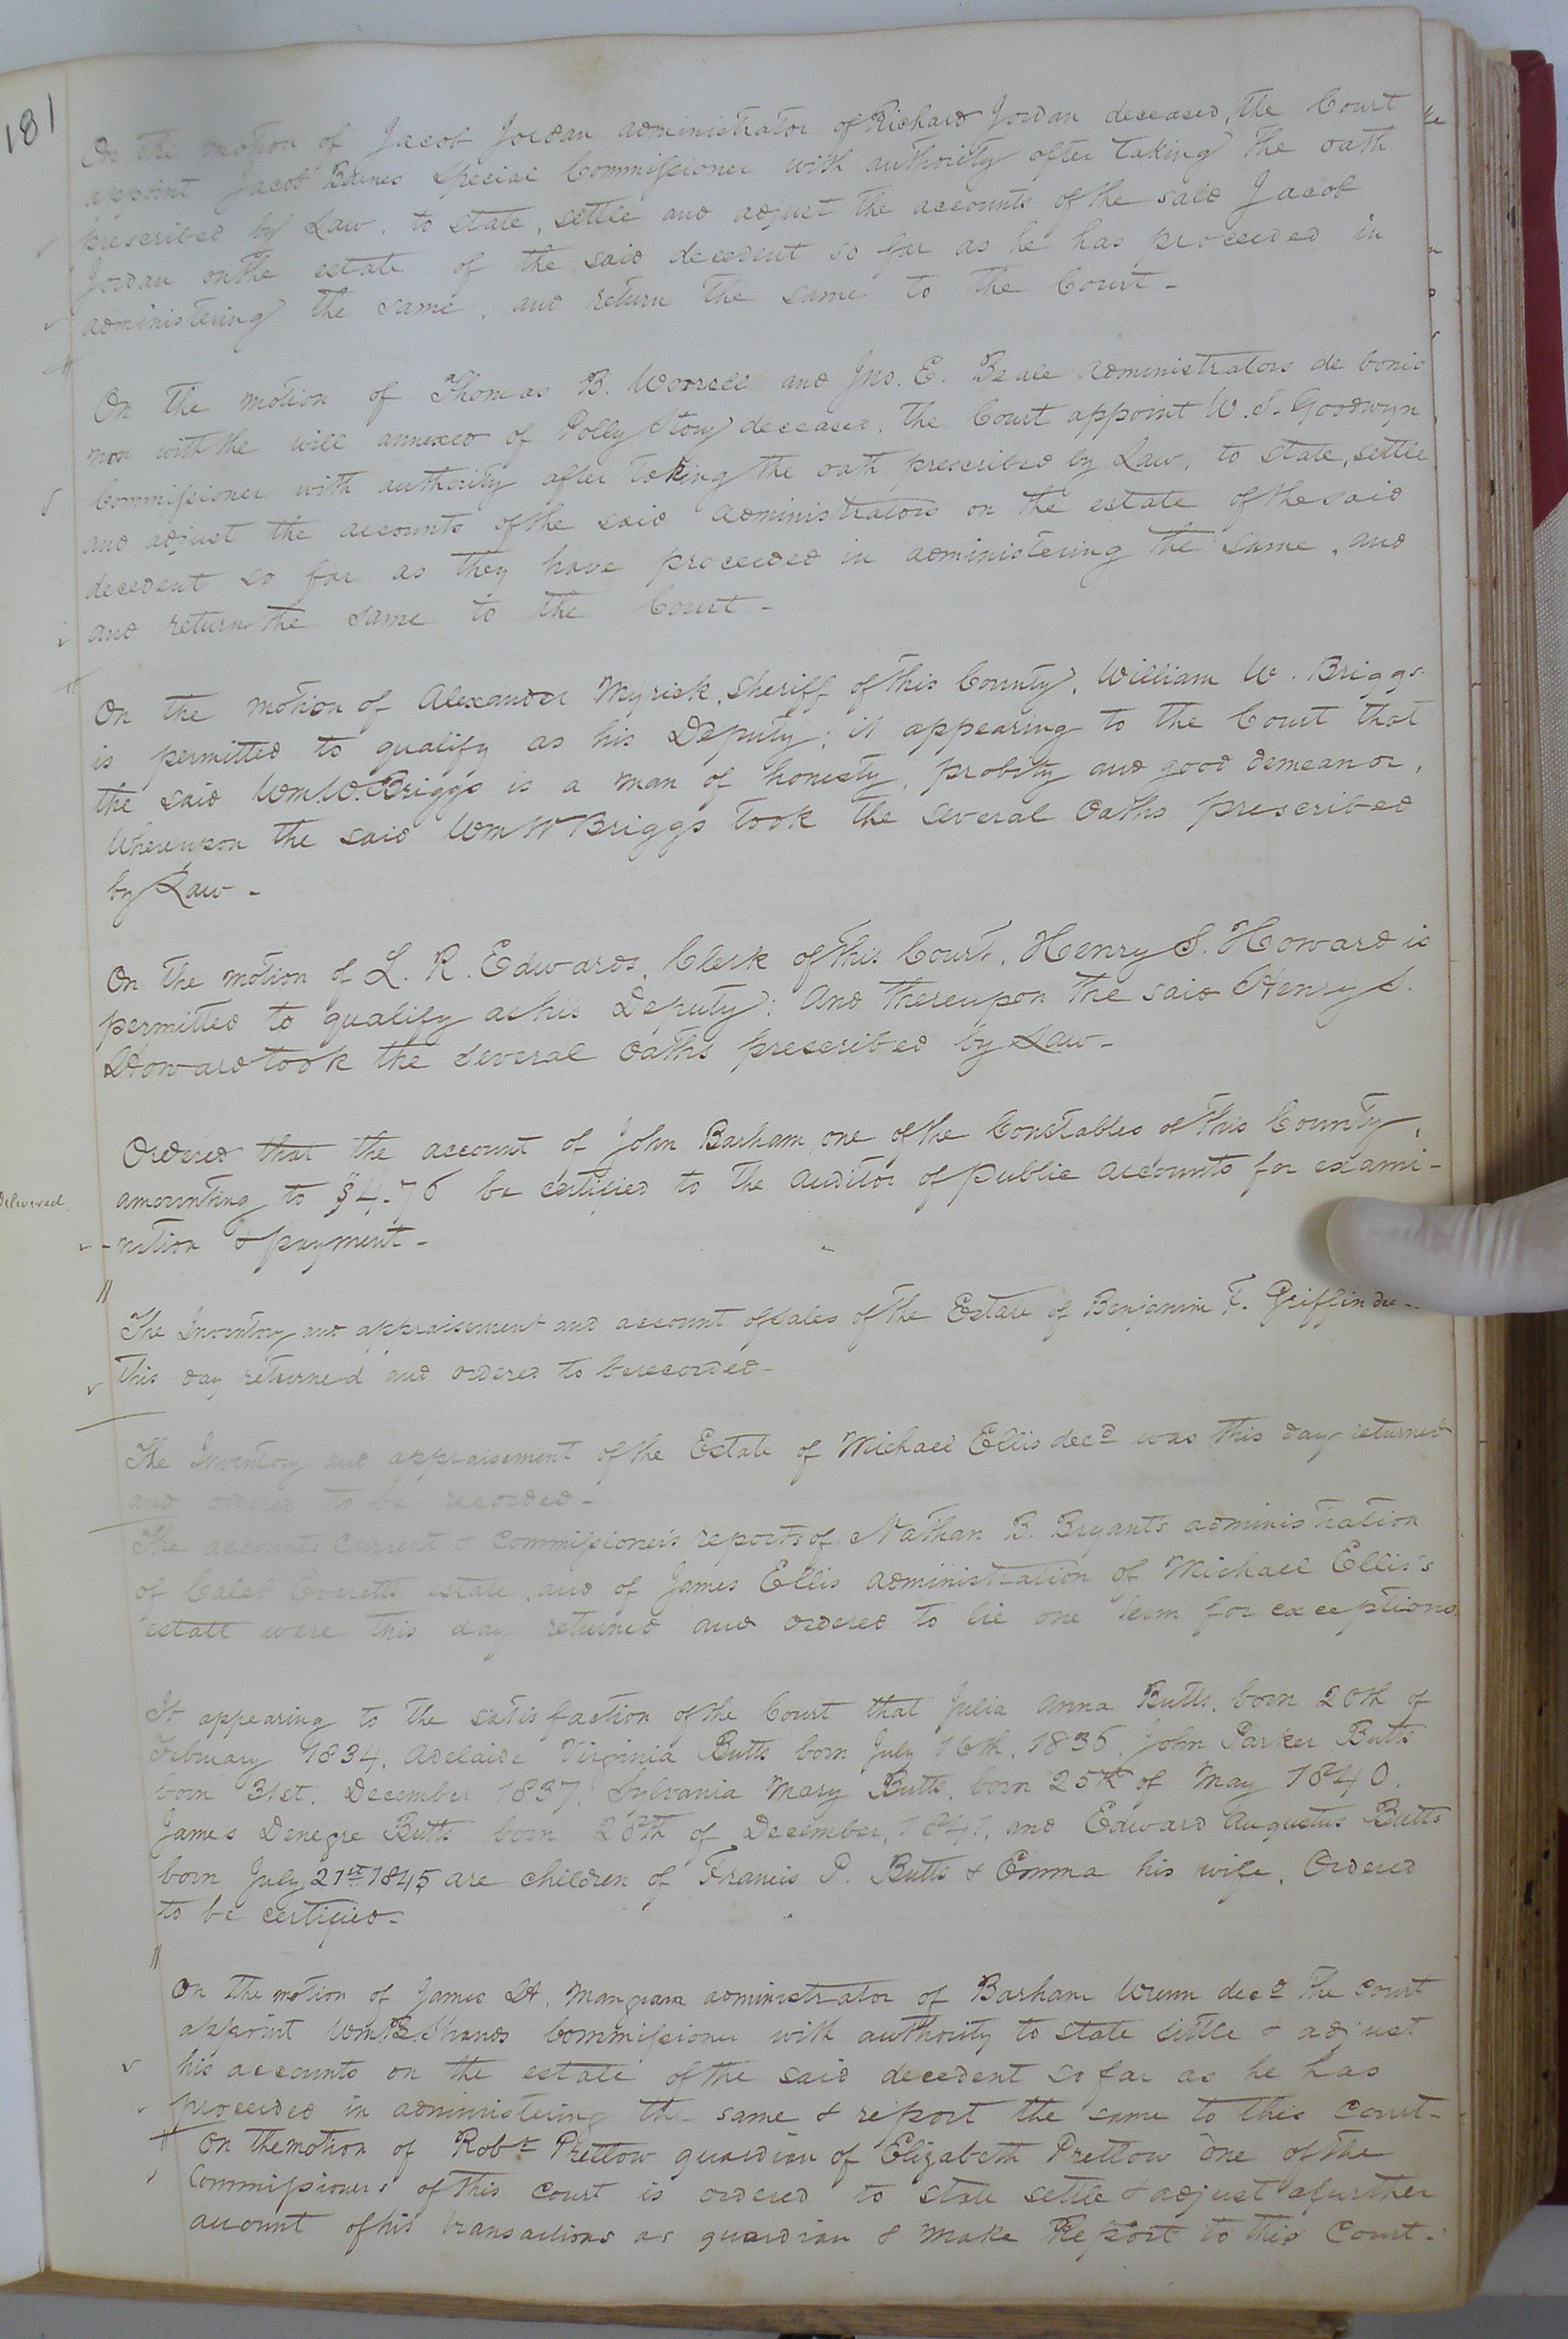 181
On the motion of Jacob Jordan administrator of Richard Jordan deceased, the Court
appoint Jacob Barnes Special Commissioner with authority after taking the oath
prescribed by Law, to state, settle and adjust the accounts of the said Jacob
Jordan on the estate of the said decedent so far as he has proceeded in
administering the same, and return the same to the Court -
On the motion of Thomas B. Worrell and Jno. E. Beale administrators de bonis
non with the will annexed of Polly Story deceased, the Court appoint W. S. Goodwyn
Commissioner with authority after taking the oath prescribed by Law, to state, settle
and adjust the accounts of the said administrators on the estate of the said
decedent so far as they have proceeded in administering the same, and
and return the same to the Court -
On the motion of Alexander Myrick, Sheriff of this County, William W. Briggs
is permitted to qualify as his Deputy; it appearing to the Court that
the said Wm. W. Briggs is a man of honesty, probity and good demeanor,
Whereupon the said Wm W Briggs took the several oaths prescribed
by Law -
On the motion of L. R. Edwards, Clerk of this Court, Henry S. Howard is
permitted to qualify as his Deputy: And thereupon the said Henry S.
Howard took the several oaths prescribed by Law -
Ordered that the account of John Barham one of the Constables of this County,
amounting to $4.76 be certified to the auditor of public accounts for exami-
Delivered
nation & payment -
The Inventory and appraisement and account of sales of the Estate of Benjamin F. Griffin
this day returned and ordered to be recorded -
The Inventory and appraisement of the Estate of Michael Ellis decd was this day returned
and ordered to be recorded -
The accounts Current & Commissioner's reports of Nathan B. Bryants administration
of Caleb Everetts estate, and of James Ellis administration of Michael Ellis's
estate were this day returned and ordered to lie one term for exceptions
It appearing to the satisfaction of the Court that Julia Anna Butts, born 20th of
February 1834, Adelaide Virginia Butts born July 16th, 1836, John Parker Butts
born 31st. December 1837, Sylvania Mary Butts, born 25th of May 1840,
James Denegre Butts born 28th of December, 1841, and Edward Augustus Butts
born July 21st 1845 are children of Francis P. Butts & Emma his wife, Ordered
to be certified -
On the motion of James H. Mangram administrator of Barham Wrenn decd The Court
appoint Wm B. Shands Commissioner with authority to state settle & adjust
his accounts on the estate of the said decedent so far as he has
proceeded in administering the same & report the same to this Court -
On the motion of Robt Pretlow guardian of Elizabeth Pretlow one of the
Commissioners of this Court is ordered to state settle & adjust a further
account of his transactions as guardian & make Report to this Court -